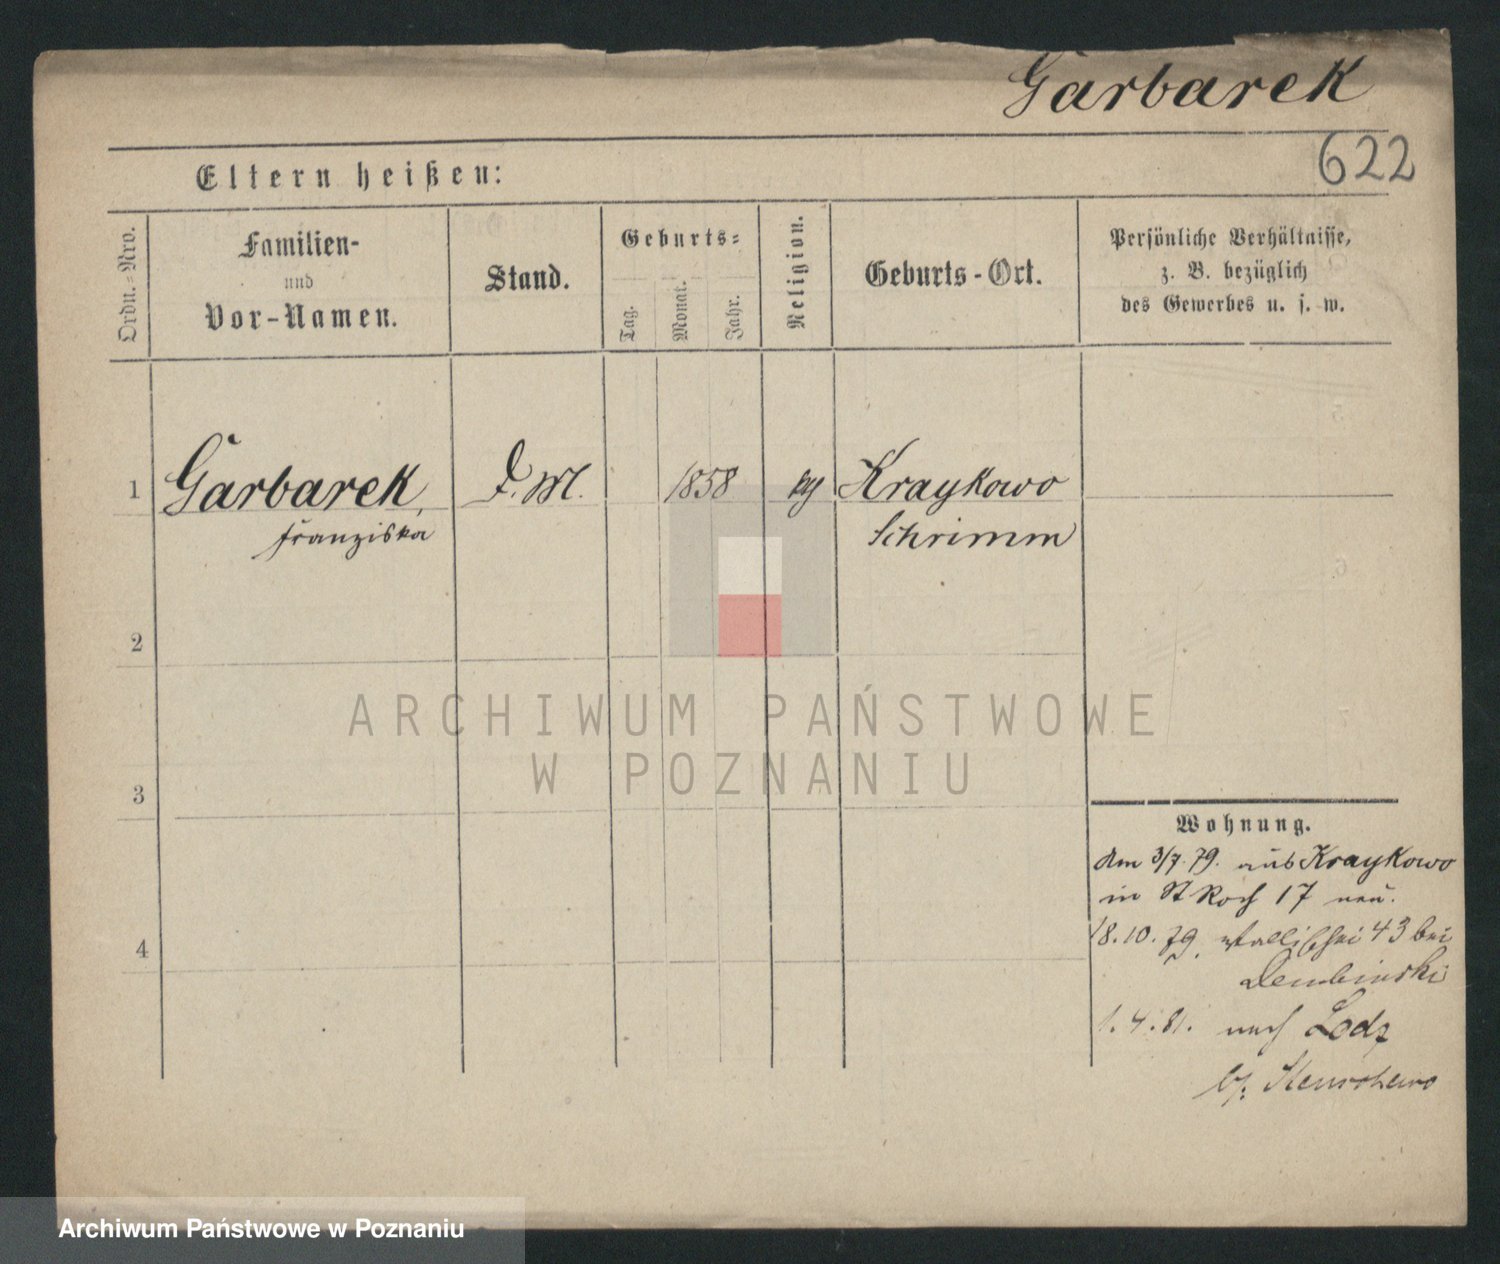 Garbarek
622
Eltern heißen:
Ordn.-Nro.
Familien-
und
Vor-Namen.
Stand.
Geburts-
Tag.
Monat.
Jahr.
Religion.
Geburts-Ort.
Persönliche Verhältnisse,
z. B. bezüglich
des Gewerbes u. s. w.
1
Garbarek,
Franziska
D. M.
1858
Kraykowo
Schrimm
2
3
4
Wohnung.
den 3/7. 79. aus Kraykowo
in St Roch 17 neu.
18.10.79. Wallischei 43 bei
Dembinski
1.4.81. nach Lodz
b/. Stenschewo
ARCHIWUM PAŃSTWOWE
W POZNANIU
Archiwum Państwowe w Poznaniu